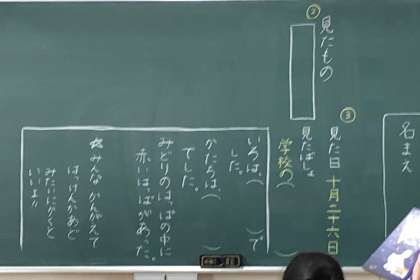 名まえ
③
見た日 十月二十六日
見たばしょ
学校の( )
②
見たもの
いろは、( )で
した。
かたちは、( )
でした。
みどりのはっぱの中に
赤いはっぱがあった。
みんな かんがえて
はっけんかあど
みたいにかくと
いいより